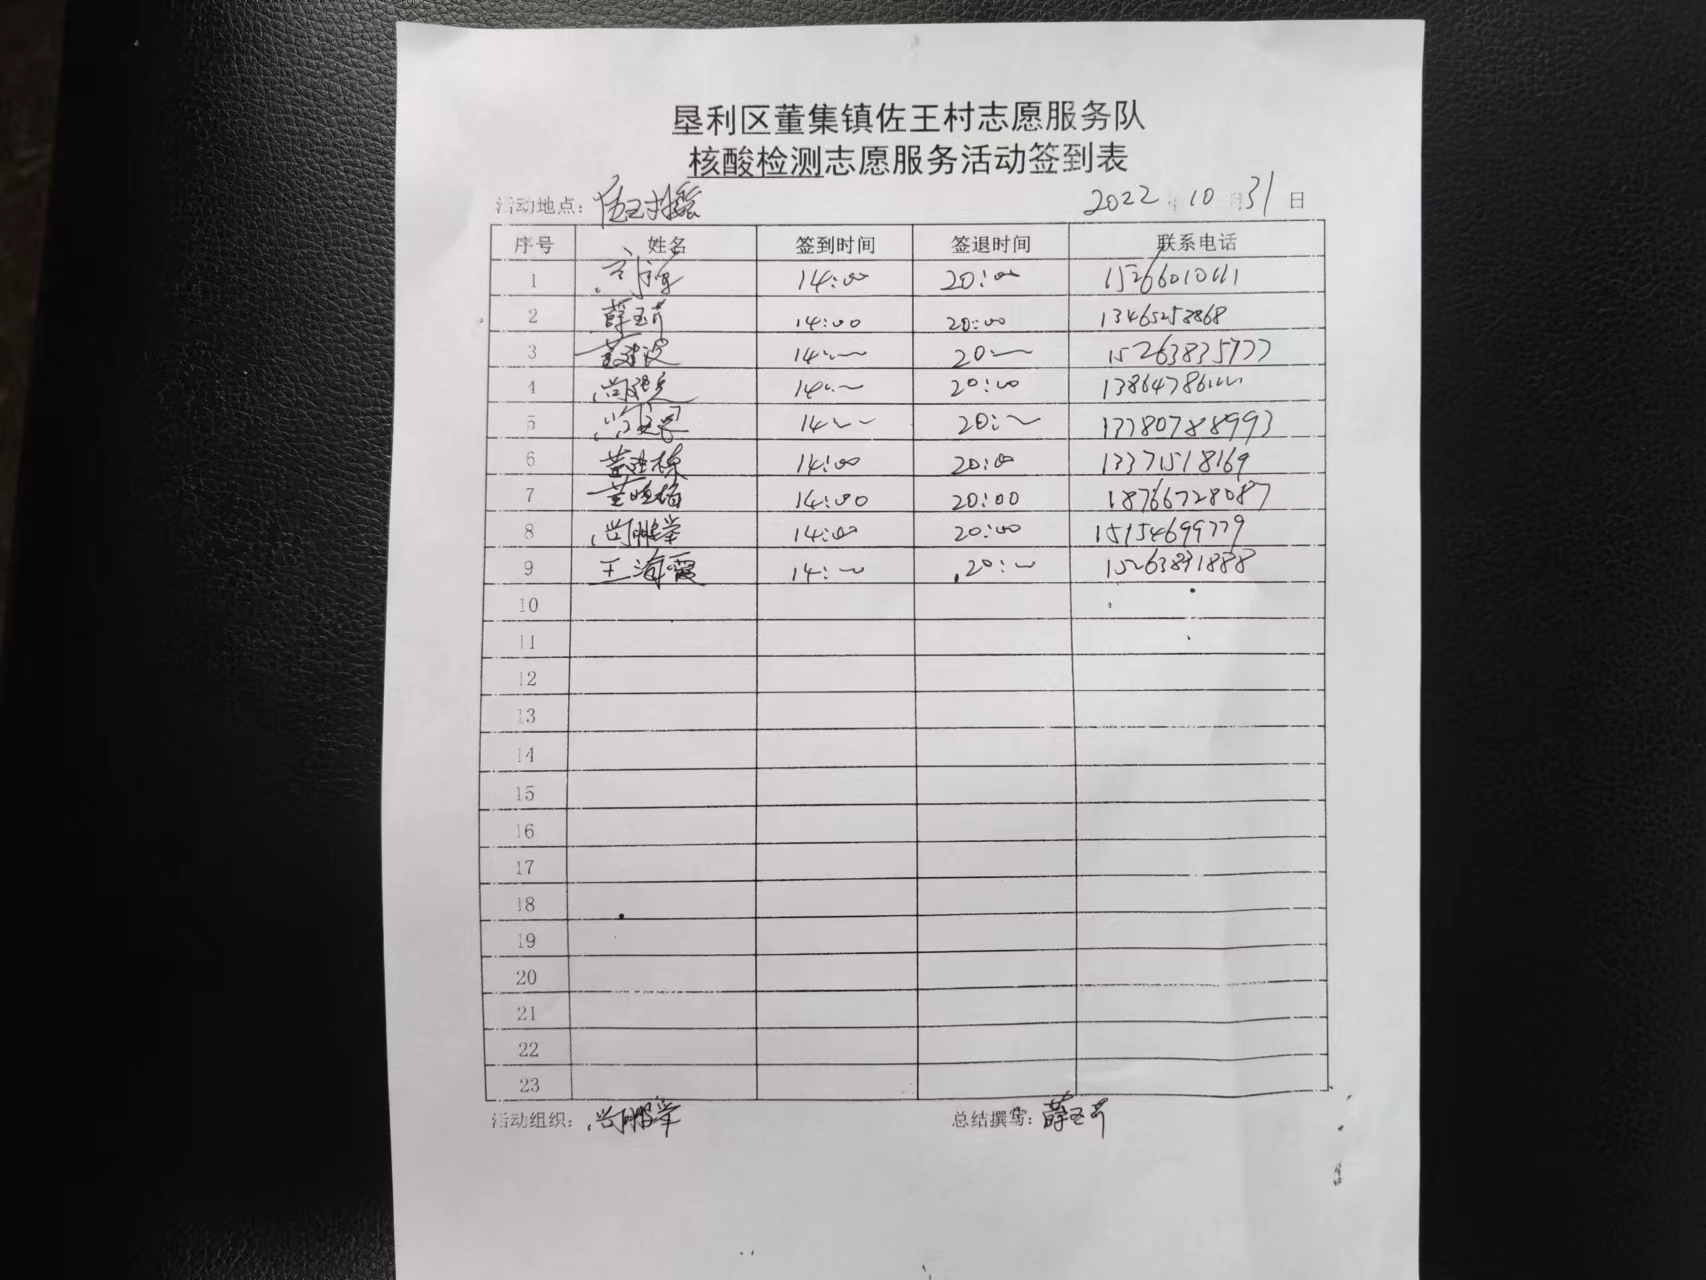 垦利区董集镇佐王村志愿服务队
核酸检测志愿服务活动签到表
活动地点: 佐王村 2022年10月31日
序号 姓名 签到时间 签退时间 联系电话
1 14:00 20:00
2 薛玉芹 14:00 20:00 13465253868
3 14:00 20:00 15263835777
4 14:00 20:00
5 14:00 20:00 13780788993
6 董建栋 14:00 20:00 13371518169
7 董晓梅 14:00 20:00 18766728087
8 尚鹏举 14:00 20:00 15154699779
9 王海霞 14:00 20:00 15263891888
10
11
12
13
14
15
16
17
18
19
20
21
22
23
活动组织: 尚鹏举 总结撰写: 薛玉芹